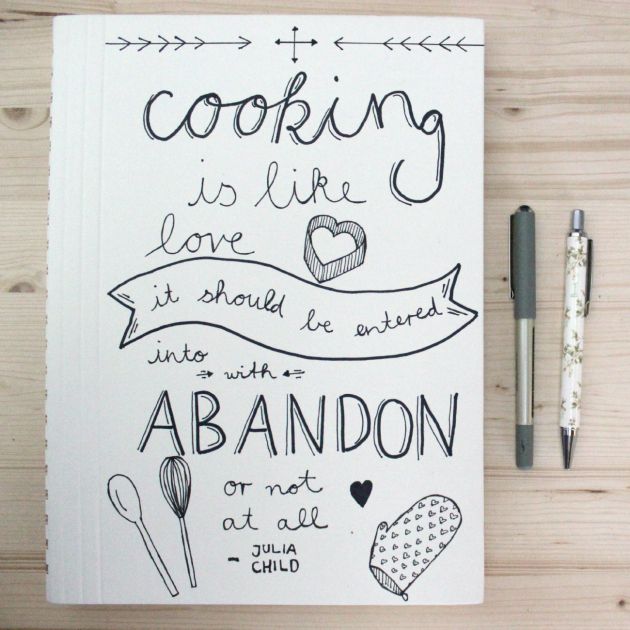 cooking
is like
love
it should be entered
into
with
ABANDON
or not
at all
- JULIA
CHILD